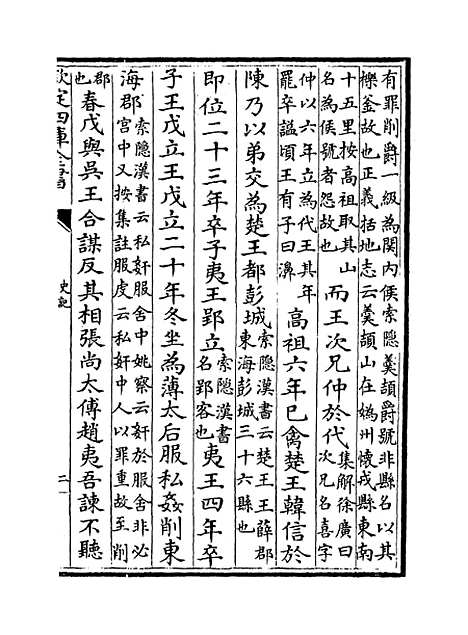 有罪削爵一級為關内侯索隱羮頡爵號非縣名以其
櫟釜故也正義括地志云羮頡山在媯州懷戎縣東南
十五里按高祖取其山
名為侯號者怨故也
而王次兄仲於代
集解徐廣曰
次兄名喜字
仲以六年立為代王其年
罷卒諡頃王有子曰濞
高祖六年已禽楚王韓信於
陳乃以弟交為楚王都彭城
索隱漢書云楚王王薛郡
東海彭城三十六縣也
即位二十三年卒子夷王郢立
索隱漢書
名郢客也
夷王四年卒
子王戊立王戊立二十年冬坐為薄太后服私姦削東
海郡
索隱漢書云私姧服舍中姚察云姧於服舍非必
宫中又按集註服虔云私姧中人以罪重故至削
郡
也
春戊與吳王合謀反其相張尚太傅趙夷吾諫不聽
欽定四庫全書
史記
二